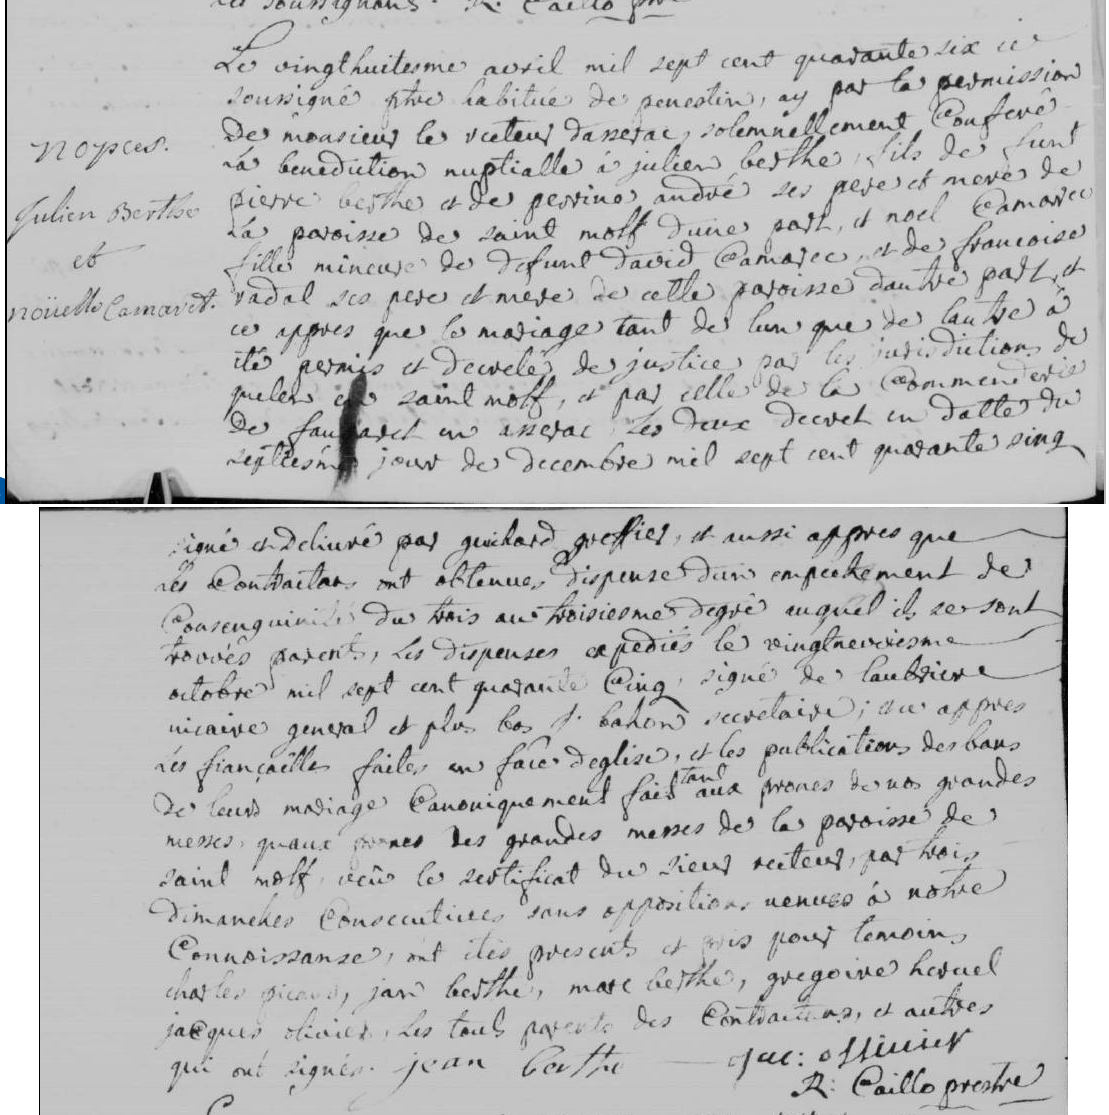 les soussignants. R. Caillo ptre
Le vingthuitesme avril mil sept cent quarante six je
soussigné ptre habitué de penestin, ay par la permission
De monsieur le recteur dasserac, solemnellement Conferé
La benediction nuptialle à julien berthe, fils de funt
pierre berthe et de perrine andré ses pere et mere de
La paroisse de saint molf dune part, et noel Camarec
fille mineure de defunt david Camarec, et de francoise
radal ses pere et mere de cette paroisse dautre part, et
ce appres que le mariage tant de lun que de lautre à
été permis et decrelé de justice par les jurisdictions de
quelen en saint molf, et par celle de la Commenderie
De faugaret en asserac, Les deux decret en datte du
septiesme jour de decembre mil sept cent quarante sinq
Nopces.
Julien Berthe
et
noüelle Camaret.
signé et deliuré par guichard greffier, et aussi appres que
Les Contractans ont obtenues dispense dun empechement de
Consenguinité du trois au troisiesme degré auquel ils se sont
trouvés parents, Les dispenses expediés le vingtneuviesme
octobre mil sept cent quarante Cinq, signé de laubriere
uicaire general et plus bas f. bahon secretaire; et ce appres
Les fiançailles faites en face deglise, et les publications des bans
De leurs mariage Canoniquement fait tant aux prones de nos grandes
messes, quaux prones des grandes messes de la paroisse de
saint molf, veu le sertificat du sieur recteur, par trois
Dimanches Consecutives sans oppositions uenues à notre
Connoissanse, ont étés presents et pris pour temoins
charles picaud, jan berthe, marc berthe, gregoire heruel
jacques oliuier, Les touts parents des Contractans, et autres
qui ont signés. jean berthe jac: ollivier
R: Caillo prestre